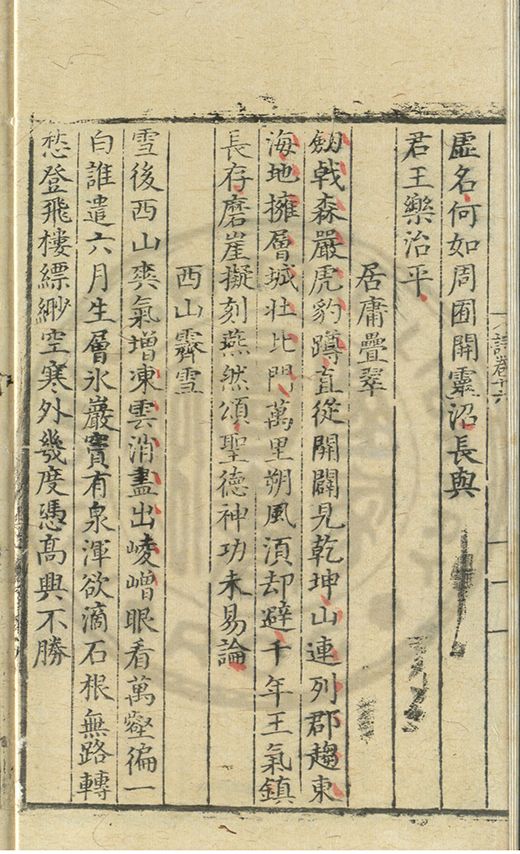 詩卷十六
虛名何如周囿開靈沼長與
君王樂治平
居庸疊翠
劒戟森嚴虎豹蹲直從開闢見乾坤山連列郡趨東
海地擁層城壯北門萬里朔風湏却避千年王氣鎮
長存磨崖擬刻燕然頌聖德神功未易論
西山霽雪
雪後西山爽氣增凍雲消盡出崚嶒眼看萬壑徧一
白誰遣六月生層氷巖竇有泉渾欲滴石根無路轉
愁登飛樓縹緲空寒外幾度憑髙興不勝